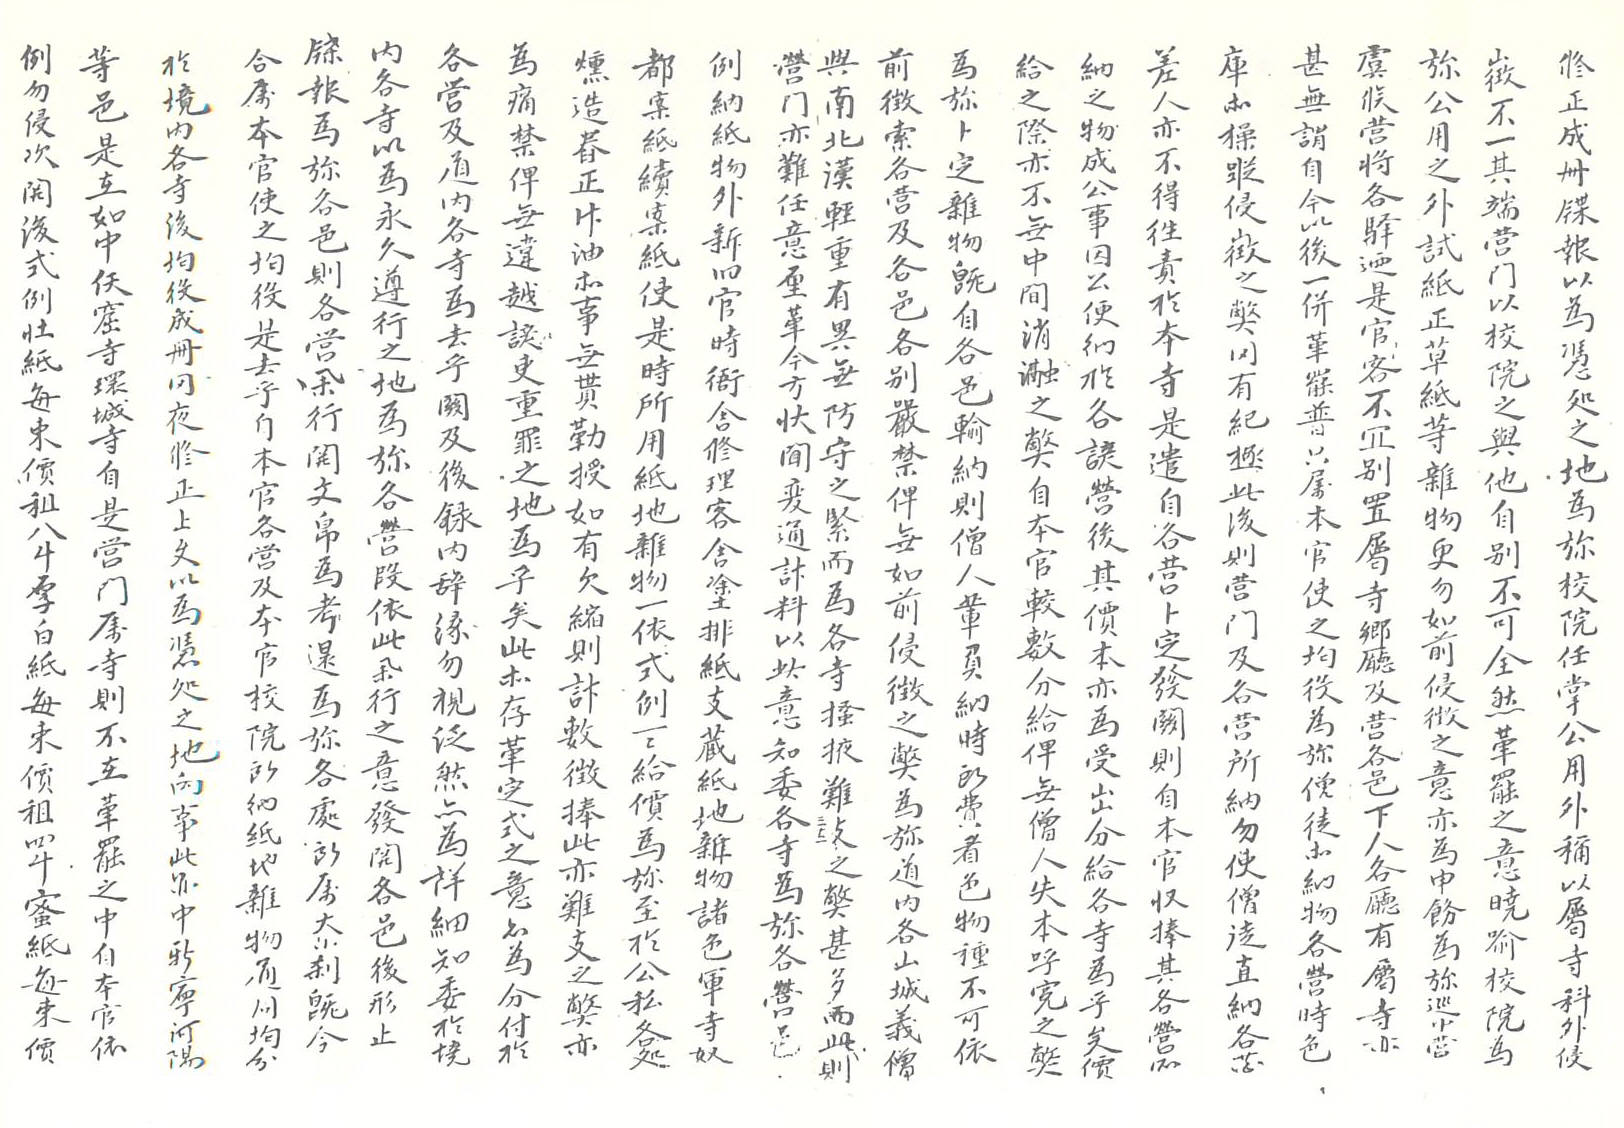 修正成冊牒報以為憑処之地為旀校院任掌公用外稱以屬寺科外侵
徵不一其端營门以校院之與他自別不可全然革罷之意曉喻校院為
旀公用之外試紙正草紙等雜物更勿如前侵徵之意亦為申飭為旀巡小营
虞候营将各驿迊是官客不冝别置屬寺鄉廳及营各邑下人各廳有屬寺亦
甚無謂自今以後一併革罷普只屬本官使之均役為旀僧徒亦納物各營時色
庫亦操蹤侵徵之獘罔有紀極此後则营门及各营所納勿使僧徒直納各营
差人亦不得徃責於本寺是遣自各营卜定發關則自本官収捧其各營
納之物成公事因公便納於各該營後其價本亦為受出分給各寺為乎矣價
給之際亦不無中間消瀜之獘自本官較數分給俾無僧人失本呼寃之獘
為旀卜定雜物旣自各邑輸納則僧人輩負納時所費者色物種不可依
前徵索各营及各邑各别嚴禁俾無如前侵徵之獘為旀道内各山城義僧
與南北漢輕重有異無防守之緊而為各寺搔掖難支之獘甚多而此則
營门亦難任意厘革今方状聞変通計料以此意知委各寺為旀各營邑
例納紙物外新旧官時衙舍修理客舍塗排紙支蔵紙地雜物諸色軍寺奴
都案紙續案紙使是時所用紙地雜物一依式例一〻給價為旀至於公私各処
燻造眷正汴油亦事無貫勒授如有欠縮則計數徵捧此亦難支之獘亦
為痛禁俾無違越該吏重罪之地為乎矣此亦存革定式之意各為分付於
各营及道内各寺為去乎關及後録内辞緣勿視泛然亦為詳細知委於境
内各寺以為永久遵行之地為旀各營段依此采行之意發関各邑後形止
牒報為旀各邑則各营采行関文帛為考還為旀各處所属大小刹旣今
合属本官使之均役是去乎自本官各营及本官校院所納紙地雜物道州均分
於境内各寺後均役成冊罔夜修正上夂以為憑処之地向事此亦中新寧河陽
等邑是在如中仸窟寺環城寺自是营门属寺則不在革罷之中自本官依
例勿侵次関後式例壮紙每束價租八斗厚白紙每束價租四斗蜜紙每束價